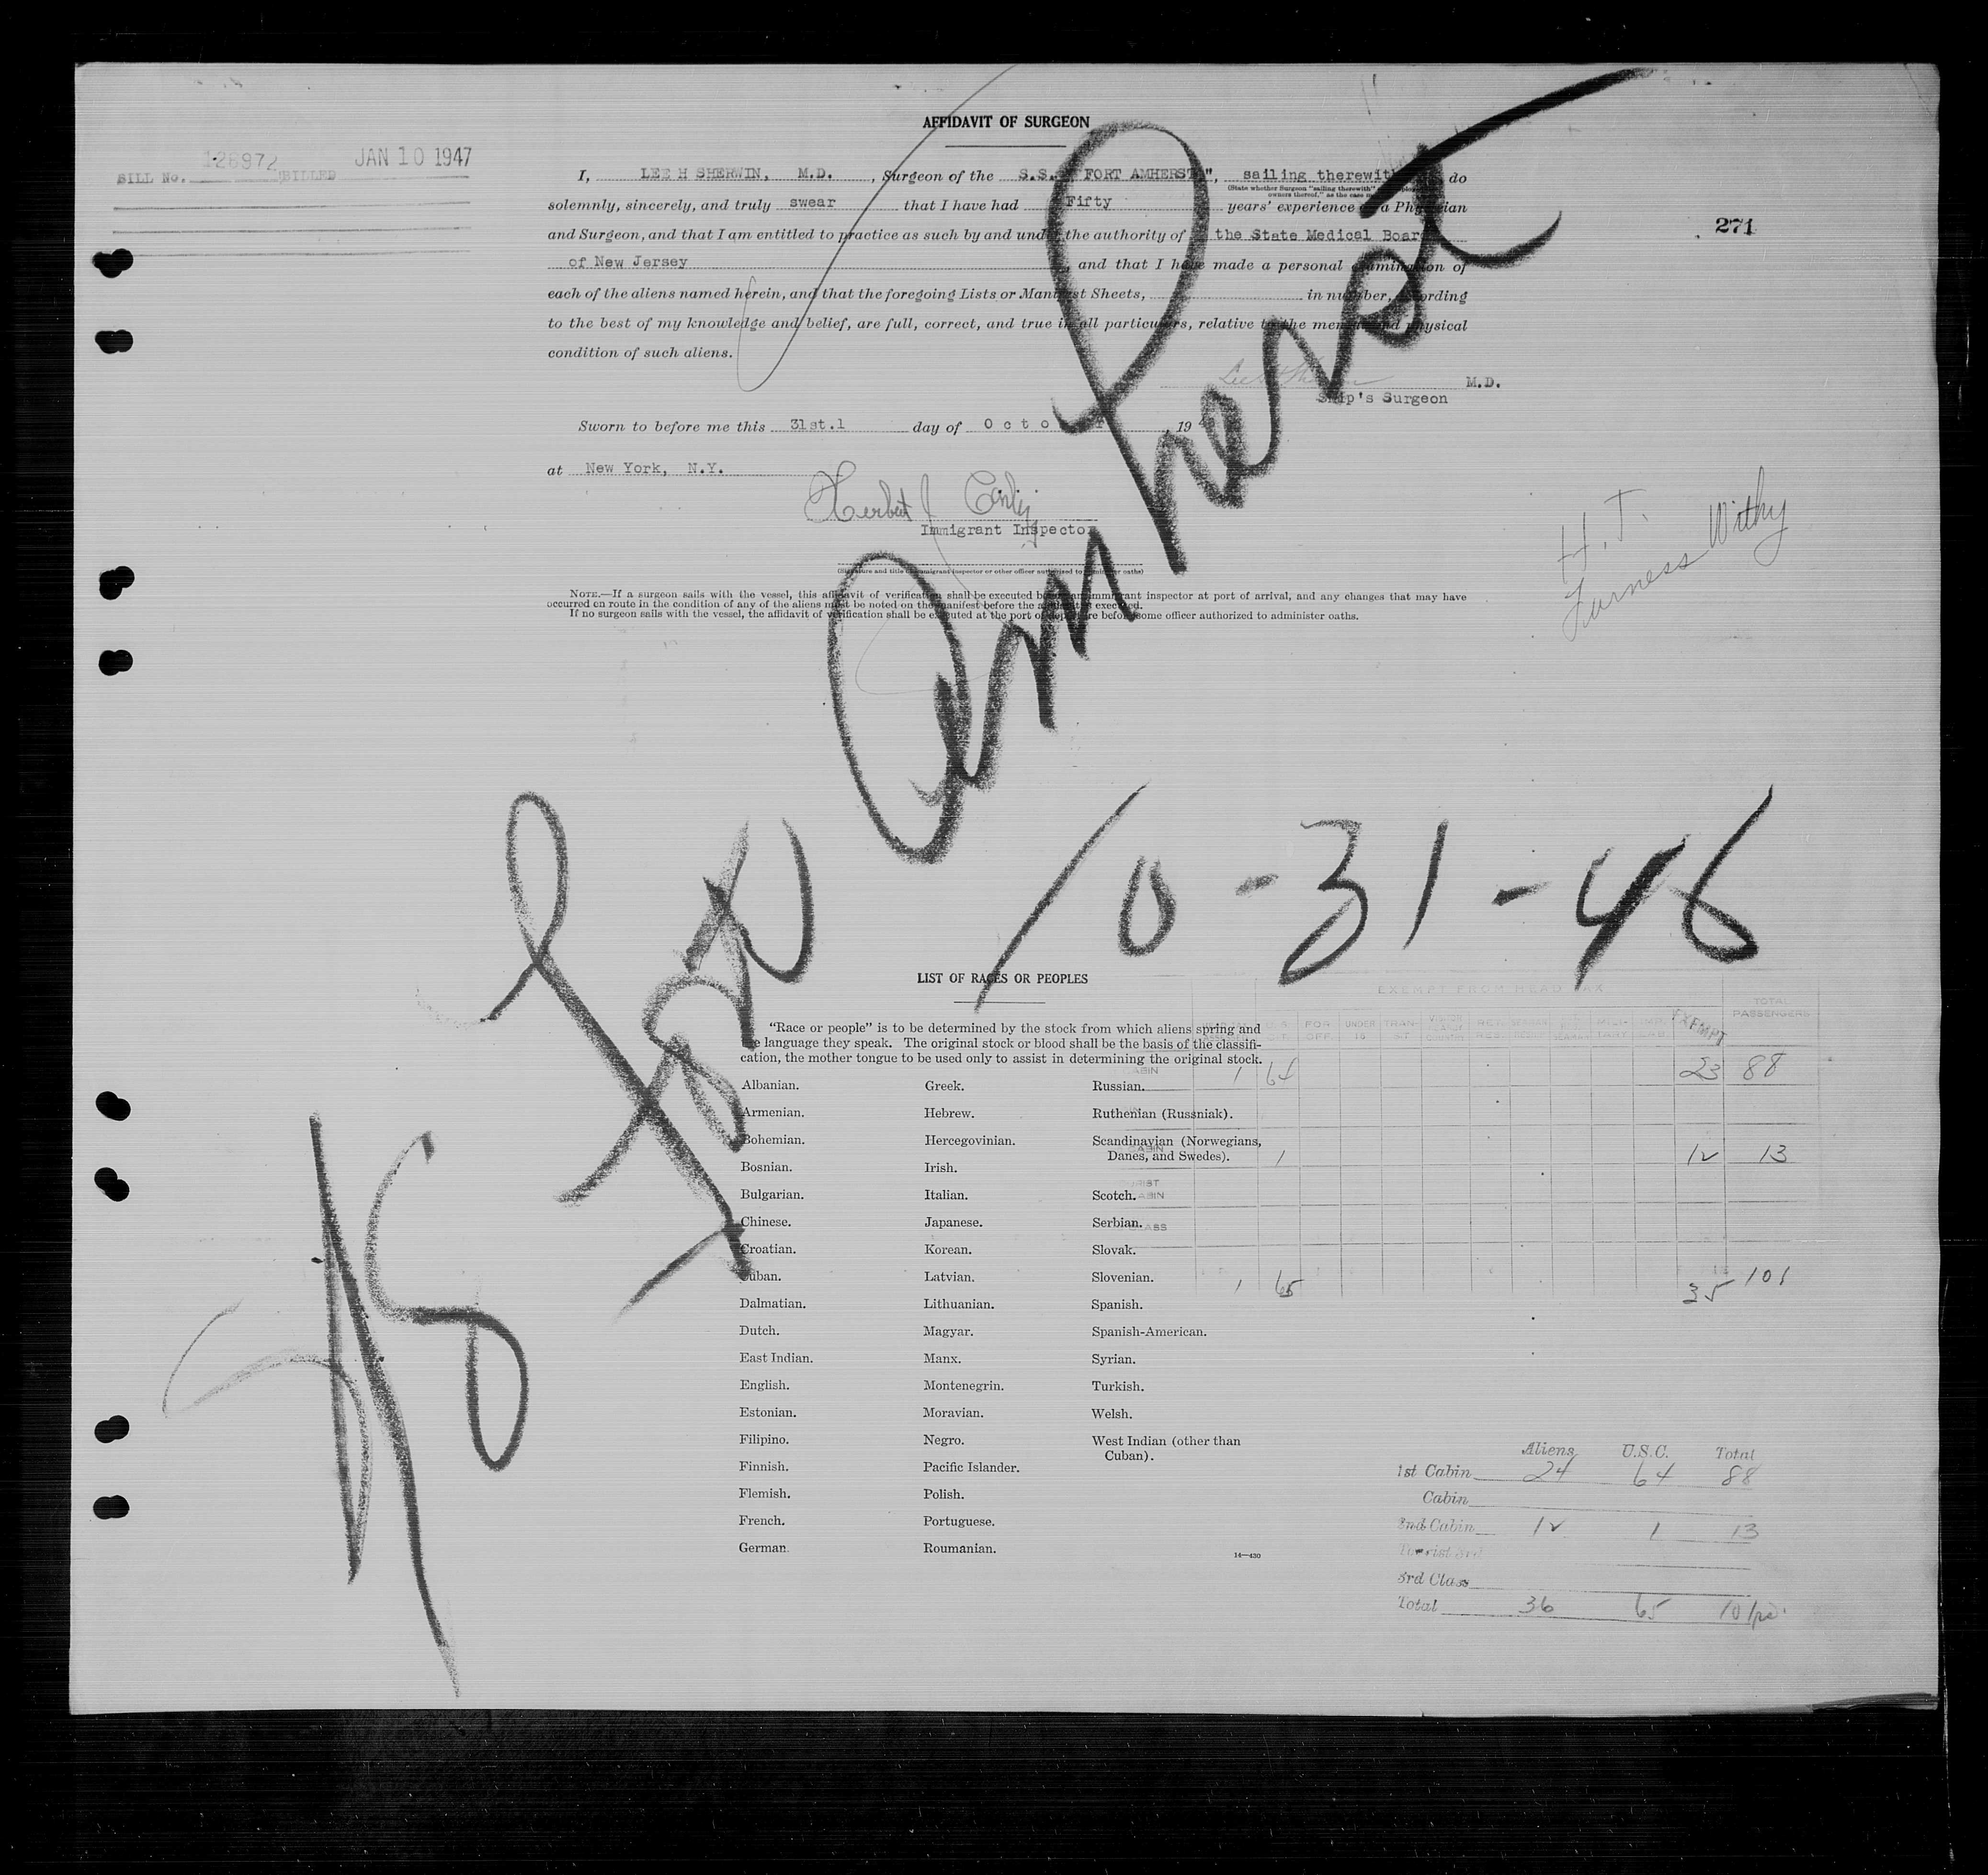 AFFIDAVIT OF SURGEON
BILL No. 128972 BILLED JAN 10 1947
I, LEE H SHERWIN, M.D. , Surgeon of the S.S. " FORT AMHERST ", sailing therewith do
(State whether Surgeon "sailing therewith"
owners thereof," as the case
solemnly, sincerely, and truly swear that I have had Fifty years' experience a Physician
and Surgeon, and that I am entitled to practice as such by and under the authority of the State Medical Board
of New Jersey , and that I have made a personal examination of
each of the aliens named herein, and that the foregoing Lists or Manifest Sheets, in number, according
to the best of my knowledge and belief, are full, correct, and true in all particulars, relative to the mental and physical
condition of such aliens.
M.D.
Ship's Surgeon
Sworn to before me this 31st.l day of Octo , 19
at New York, N.Y.
Herbert J
Immigrant Inspector
(Signature and title of immigrant inspector or other officer authorized to administer oaths)
NOTE.—If a surgeon sails with the vessel, this affidavit of verification shall be executed before an immigrant inspector at port of arrival, and any changes that may have
occurred en route in the condition of any of the aliens must be noted on the manifest before the affidavit is executed.
If no surgeon sails with the vessel, the affidavit of verification shall be executed at the port of departure before some officer authorized to administer oaths.
271
H.T.
Furness Withy
SS Fort Amherst
10-31-46
LIST OF RACES OR PEOPLES
"Race or people" is to be determined by the stock from which aliens spring and
the language they speak. The original stock or blood shall be the basis of the classifi-
cation, the mother tongue to be used only to assist in determining the original stock.
Albanian.
Armenian.
Bohemian.
Bosnian.
Bulgarian.
Chinese.
Croatian.
Cuban.
Dalmatian.
Dutch.
East Indian.
English.
Estonian.
Filipino.
Finnish.
Flemish.
French.
German.
Greek.
Hebrew.
Hercegovinian.
Irish.
Italian.
Japanese.
Korean.
Latvian.
Lithuanian.
Magyar.
Manx.
Montenegrin.
Moravian.
Negro.
Pacific Islander.
Polish.
Portuguese.
Roumanian.
Russian.
Ruthenian (Russniak).
Scandinavian (Norwegians,
Danes, and Swedes).
Scotch.
Serbian.
Slovak.
Slovenian.
Spanish.
Spanish-American.
Syrian.
Turkish.
Welsh.
West Indian (other than
Cuban).
14—430
EXEMPT FROM HEAD TAX
FOR OFF. UNDER 16 TRANSIT EXEMPT TOTAL PASSENGERS
CABIN 1 64 23 88
CABIN 1 12 13
1 65 35 101
Aliens U.S.C. Total
1st Cabin 24 64 88
Cabin
2nd Cabin 12 1 13
Tourist 3rd
3rd Class
Total 36 65 101